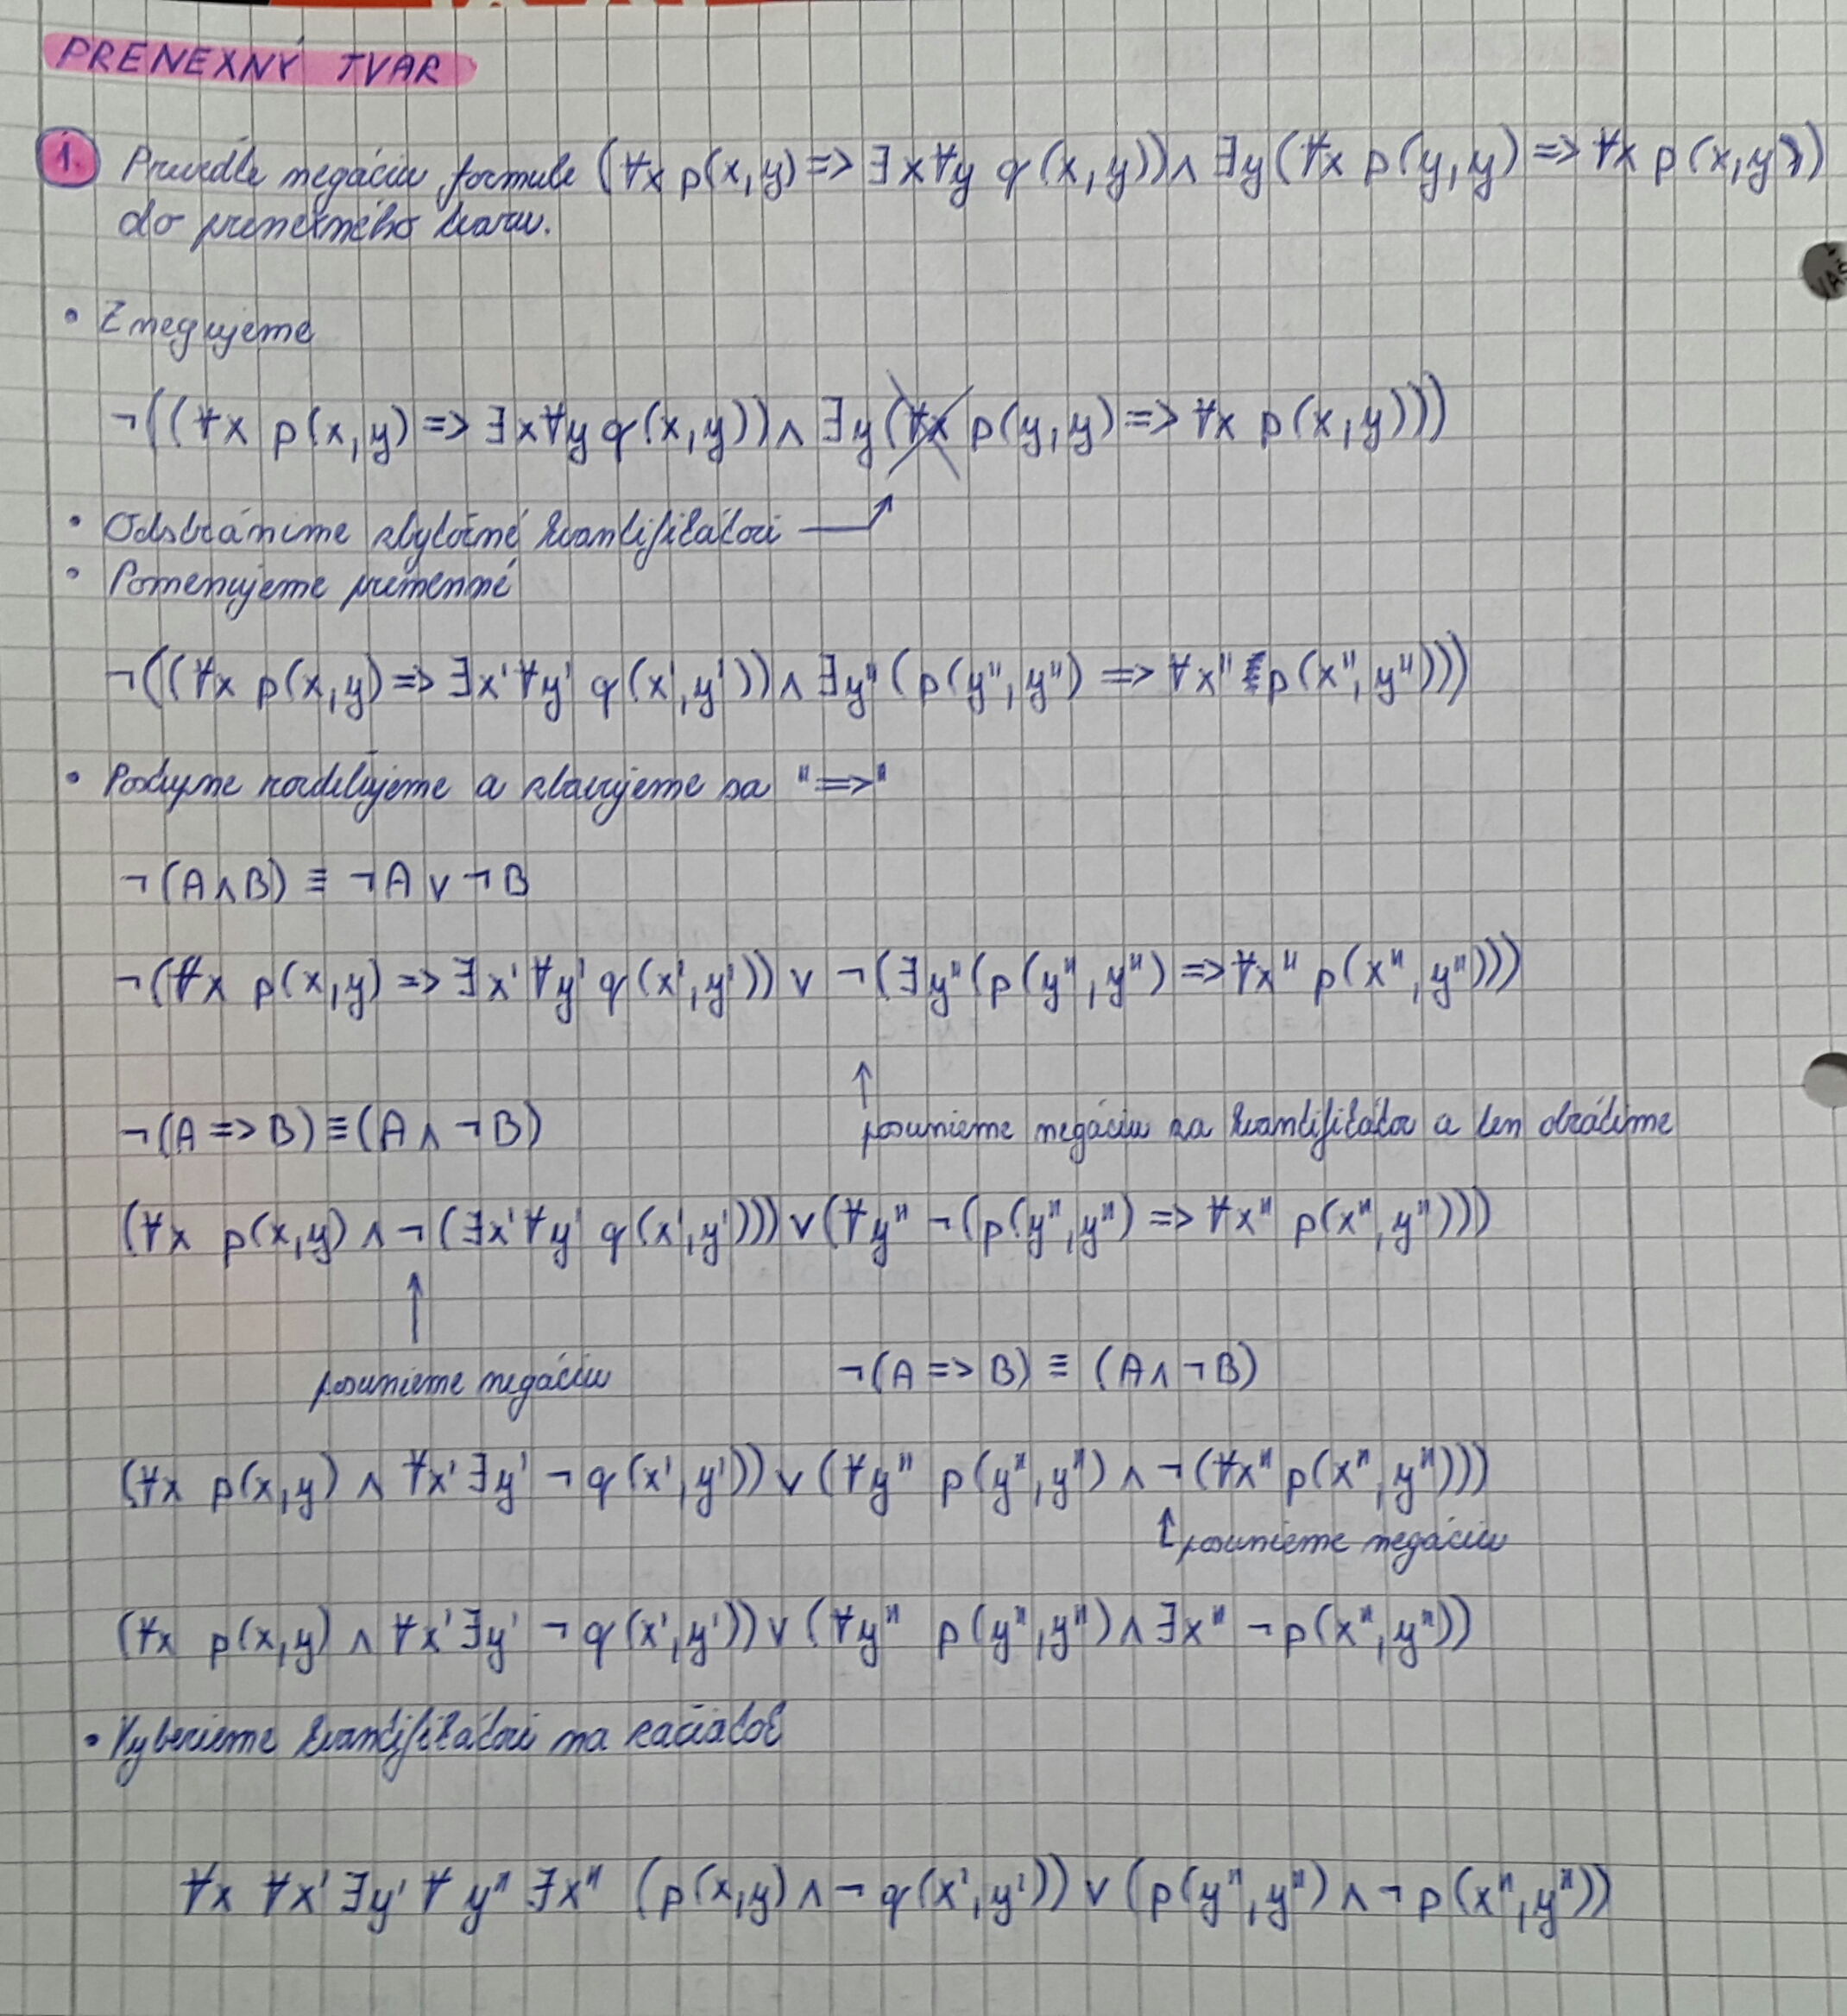 PRENEXNÝ TVAR
1. Preveďte negáciu formule (∀x p(x,y) => ∃x∀y q(x,y)) ∧ ∃y(∀x p(y,y) => ∀x p(x,y))
do prenexného tvaru.
• Znegujeme
¬((∀x p(x,y) => ∃x∀y q(x,y)) ∧ ∃y(∀x p(y,y) => ∀x p(x,y)))
• Odstránime zbytočné kvantifikátori
• Pomenujeme premenné
¬((∀x p(x,y) => ∃x'∀y' q(x',y')) ∧ ∃y''(p(y'',y'') => ∀x'' p(x'',y'')))
• Postupne rozdeľujeme a zbavujeme sa "=>"
¬(A∧B) ≡ ¬A ∨ ¬B
¬(∀x p(x,y) => ∃x'∀y' q(x',y')) ∨ ¬(∃y''(p(y'',y'') => ∀x'' p(x'',y'')))
↑
¬(A => B) ≡ (A ∧ ¬B) posunieme negáciu za kvantifikátor a ten obrátime
(∀x p(x,y) ∧ ¬(∃x'∀y' q(x',y'))) ∨ (∀y'' ¬(p(y'',y'') => ∀x'' p(x'',y'')))
↑
posunieme negáciu ¬(A => B) ≡ (A ∧ ¬B)
(∀x p(x,y) ∧ ∀x'∃y' ¬q(x',y')) ∨ (∀y'' p(y'',y'') ∧ ¬(∀x'' p(x'',y'')))
↑ posunieme negáciu
(∀x p(x,y) ∧ ∀x'∃y' ¬q(x',y')) ∨ (∀y'' p(y'',y'') ∧ ∃x'' ¬p(x'',y''))
• Vyberieme kvantifikátori na začiatok
∀x ∀x' ∃y' ∀y'' ∃x'' (p(x,y) ∧ ¬q(x',y')) ∨ (p(y'',y'') ∧ ¬p(x'',y''))